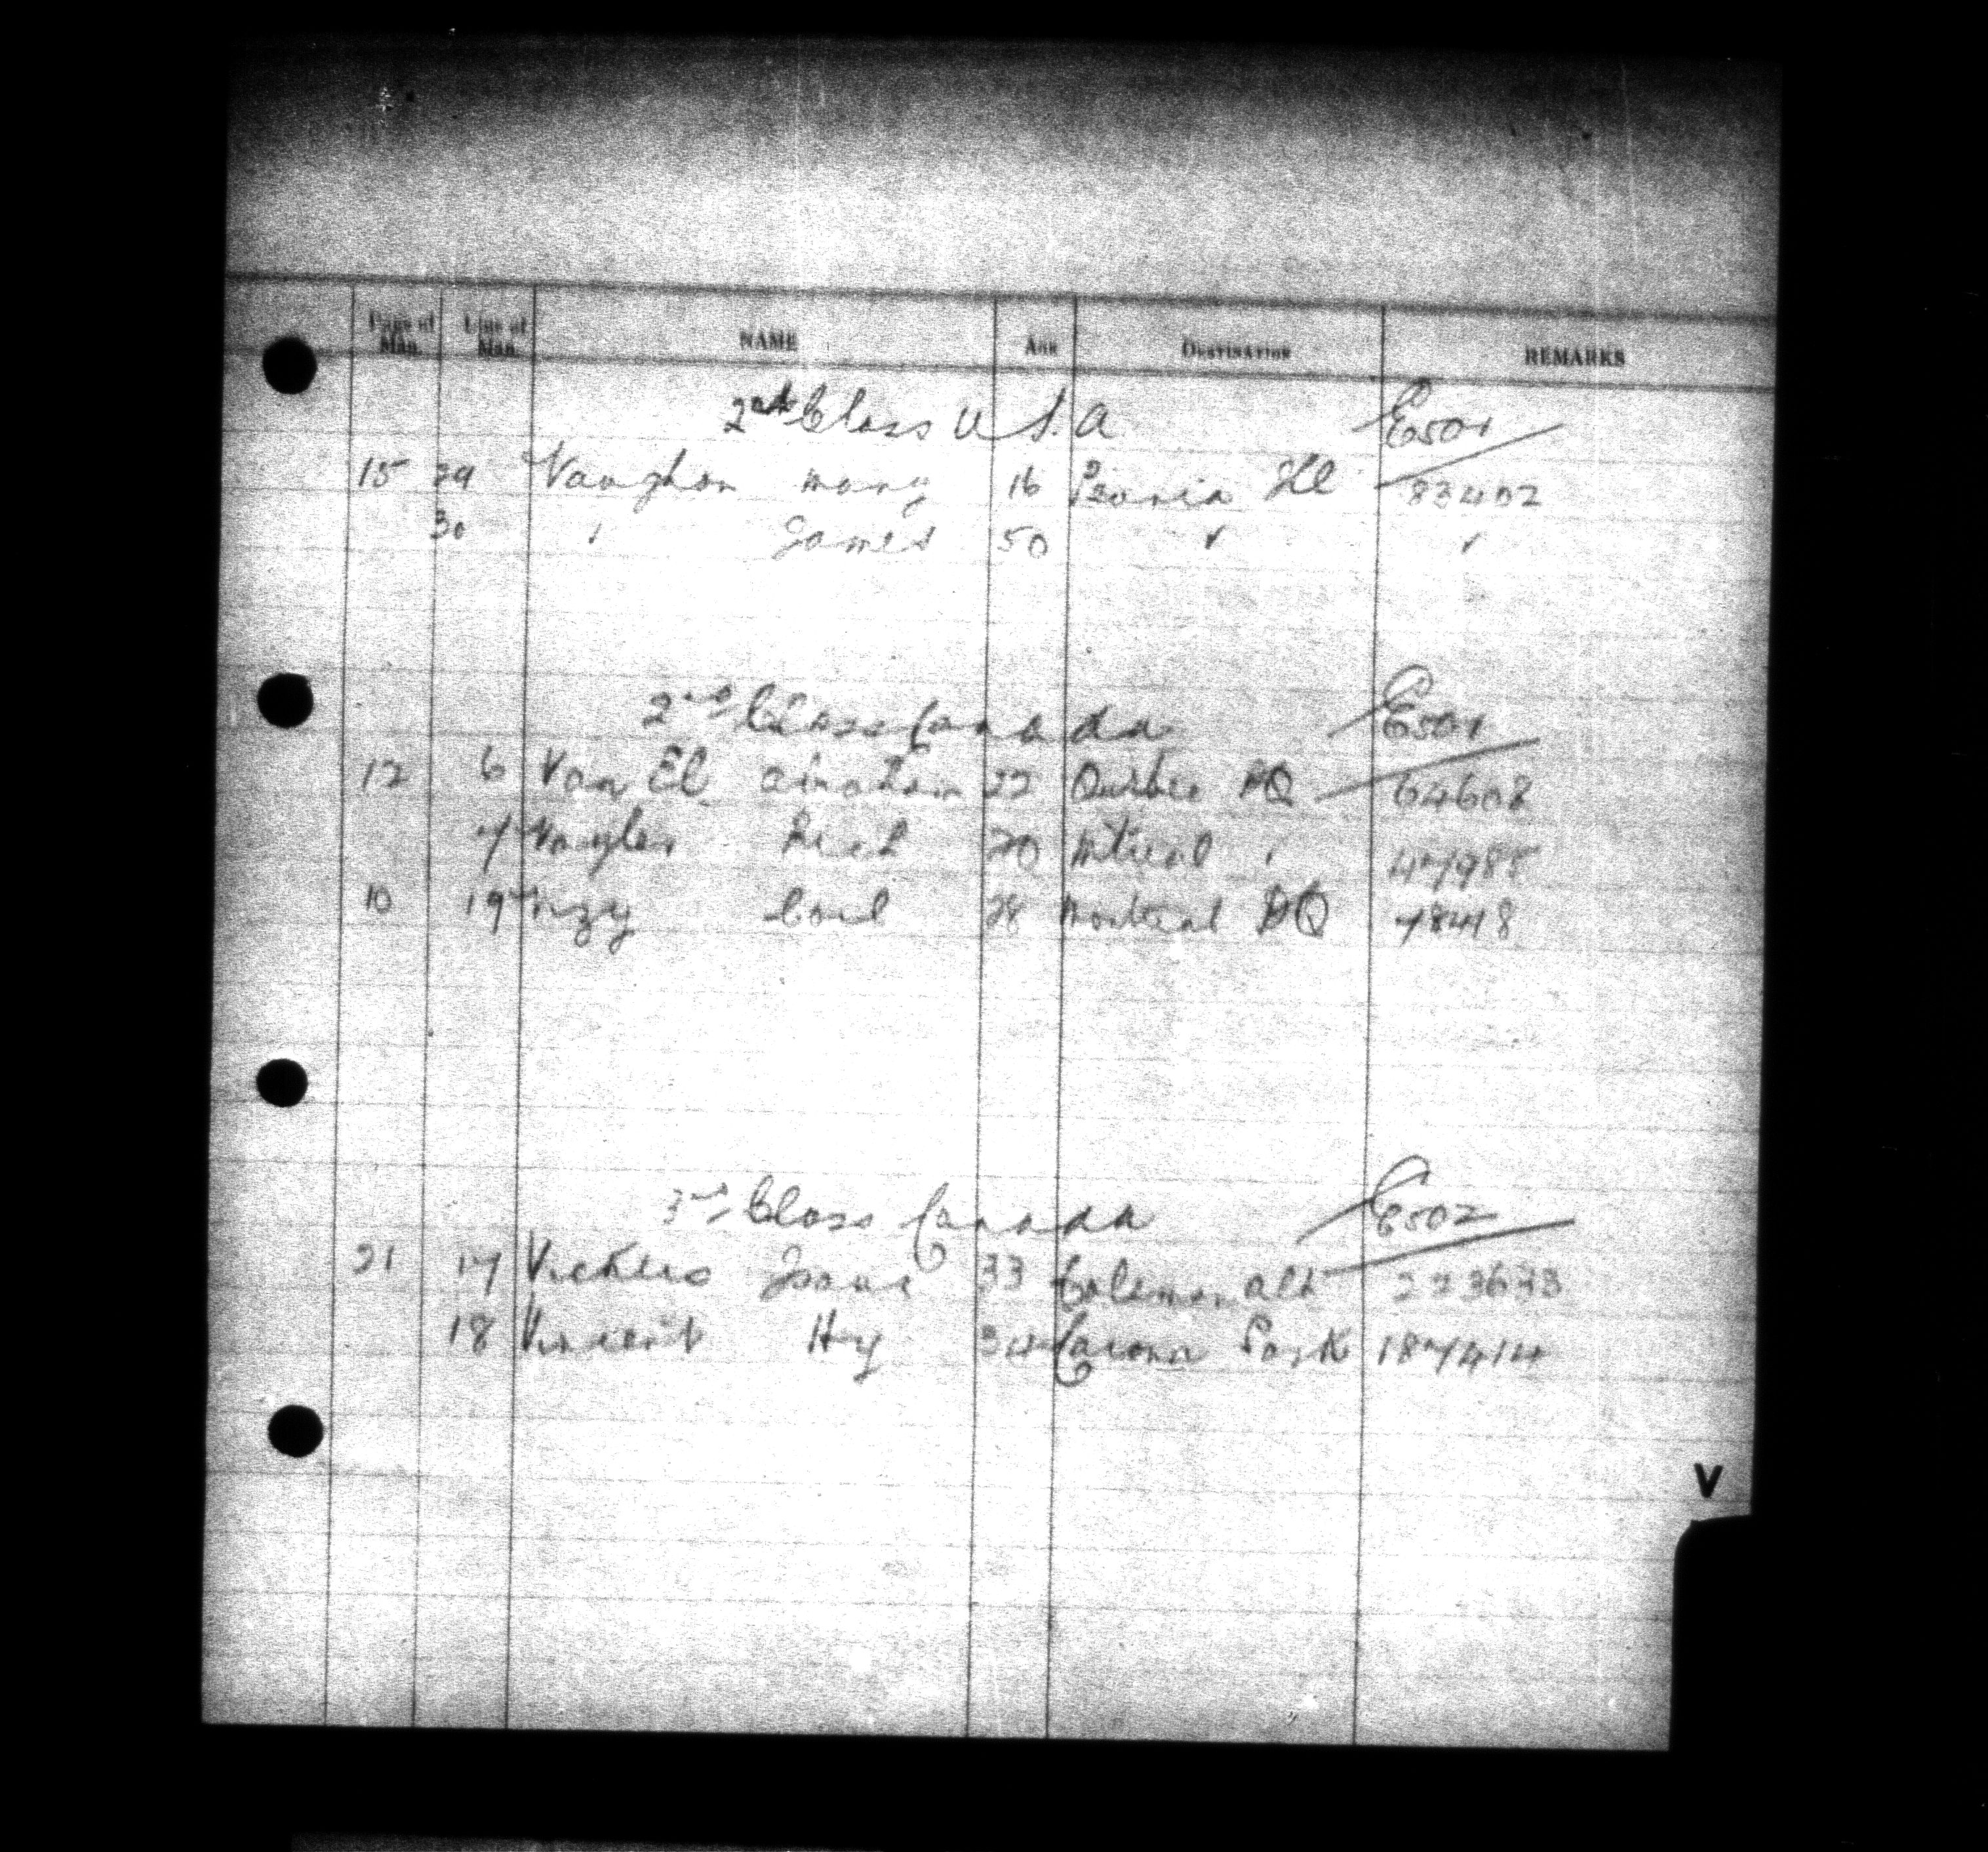 Page of Man. Line of Man. NAME Age Destination REMARKS
2nd Class U.S.A E501
15 29 Vaughan Mary 16 Peoria Ill 83402
30 " James 50 " "
2nd Class Canada E501
12 6 Van El Abraham 22 Quebec PQ 64608
7 20 Mtreal " 47988
10 19 28 Montreal PQ 78418
3rd Class Canada E502
21 17 Vickers Isaac 33 Coleman Alt 223633
18 Vincent Hy 34 Caron Sask 187414
V